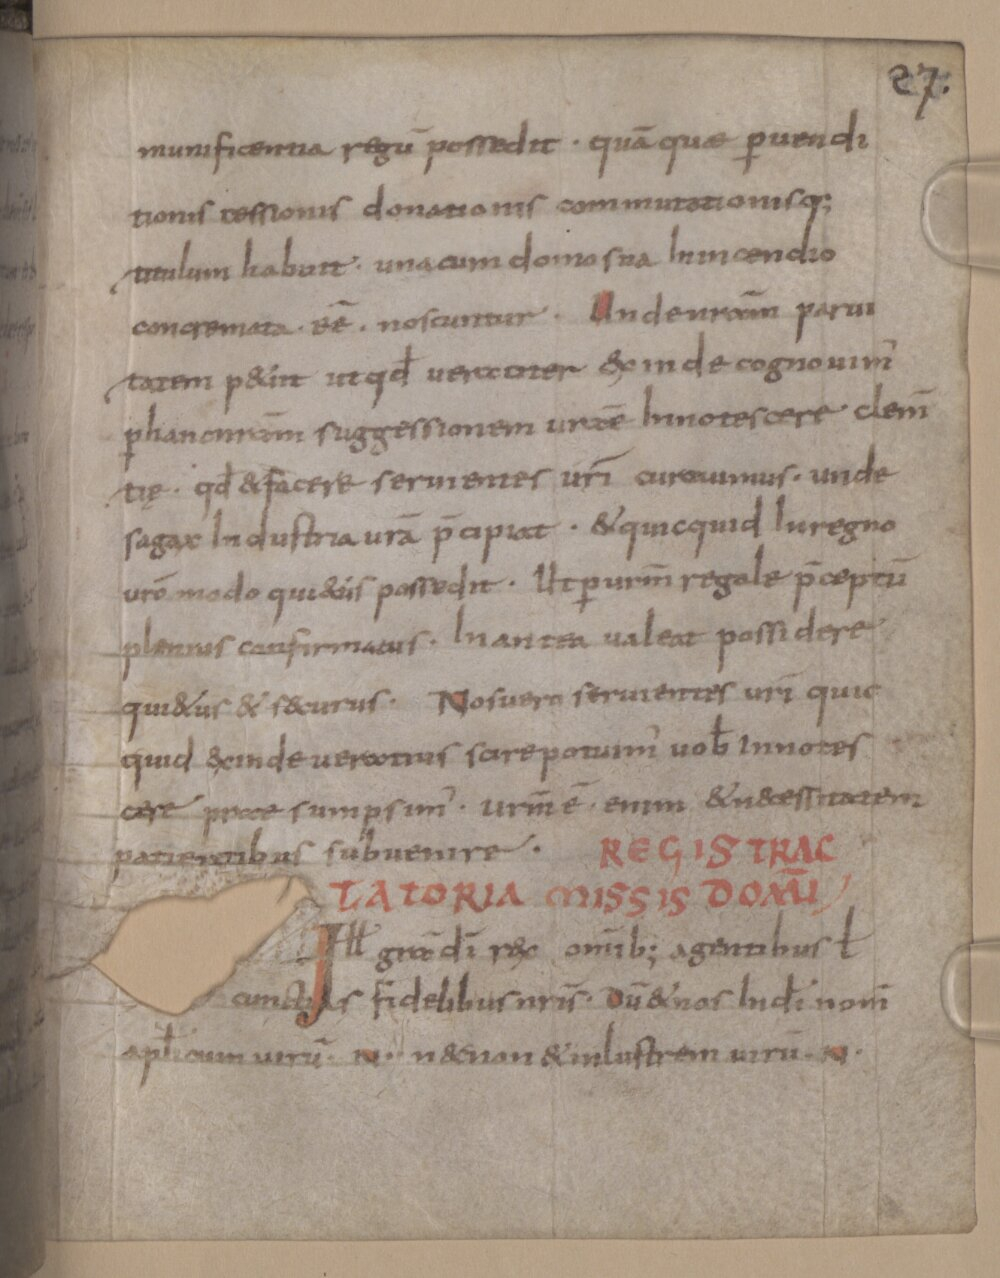 27.
munificentia regū possedit · quā quae p̲ uendi
tionis cessionis donationis commutationisq;
titulum habuit · unacum domo sua In incendio
concremata · eē · noscuntur · Unde nr̄am parui
tatem p&iit ut qd̄ ueraciter &xinde cognouim'
p̲ hanc nr̄am suggessionem ur̄ae Innotescere clem̄
tię · qd̄ & facere seruientes ur̄i curauimus · unde
sagax Industria ur̄a p̄cipiat · & quicquid In regno
ur̄o modo qui&us possedit · Ut p̲ ur̄m regale p̄ceptū
plenius confirmatus · In antea ualeat possidere
qui&us & s&urus · Nos uero seruientes ur̄i quic
quid &xinde ueracius scire potuim' uob̄ Innotes
cere prae sumpsim' · ur̄m ē · enim & n&essitatem
patientibus subuenire ·
REGIS TRAC
TATORIA MISSIS DOMNI
Ill gr̄a dī rex om̄ib; agentibus t̄
cunctis fidelibus nr̄is · Dū & nos In dī nom̄
aplicum uirū · N · n&non & inlustrem uirū · N ·